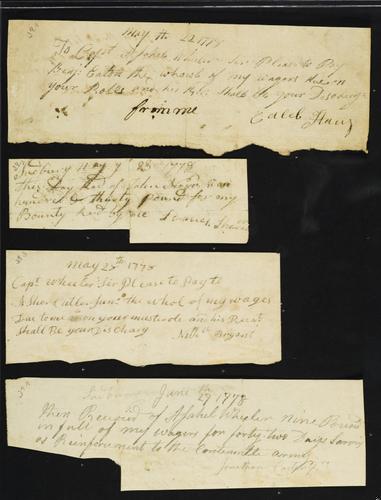 May th 22 1778
To Capt Asahel Wheeler Sir Please to Pay
Benj: Eaton the whole of my wages
your Roles and his Rct: Shall be your Discharg
from me
Caleb
Sudbury May
This Day Had of Asahel
hundred & thirty pound for my
Bounty had by me
May 28th 1778
Capt. Wheeler Sir Please to Pay to
Asher Cutler Junr. the whol of my wages
Due to me on your musterole and his Recat
Shall Be your Discharg
Bryant
Sudbury June th
27 1778
then Received of Asahel Wheeler Nine Pound
in full of my wagers for forty two Days Service
as Reinforcement to the Continantle army
Jonathan